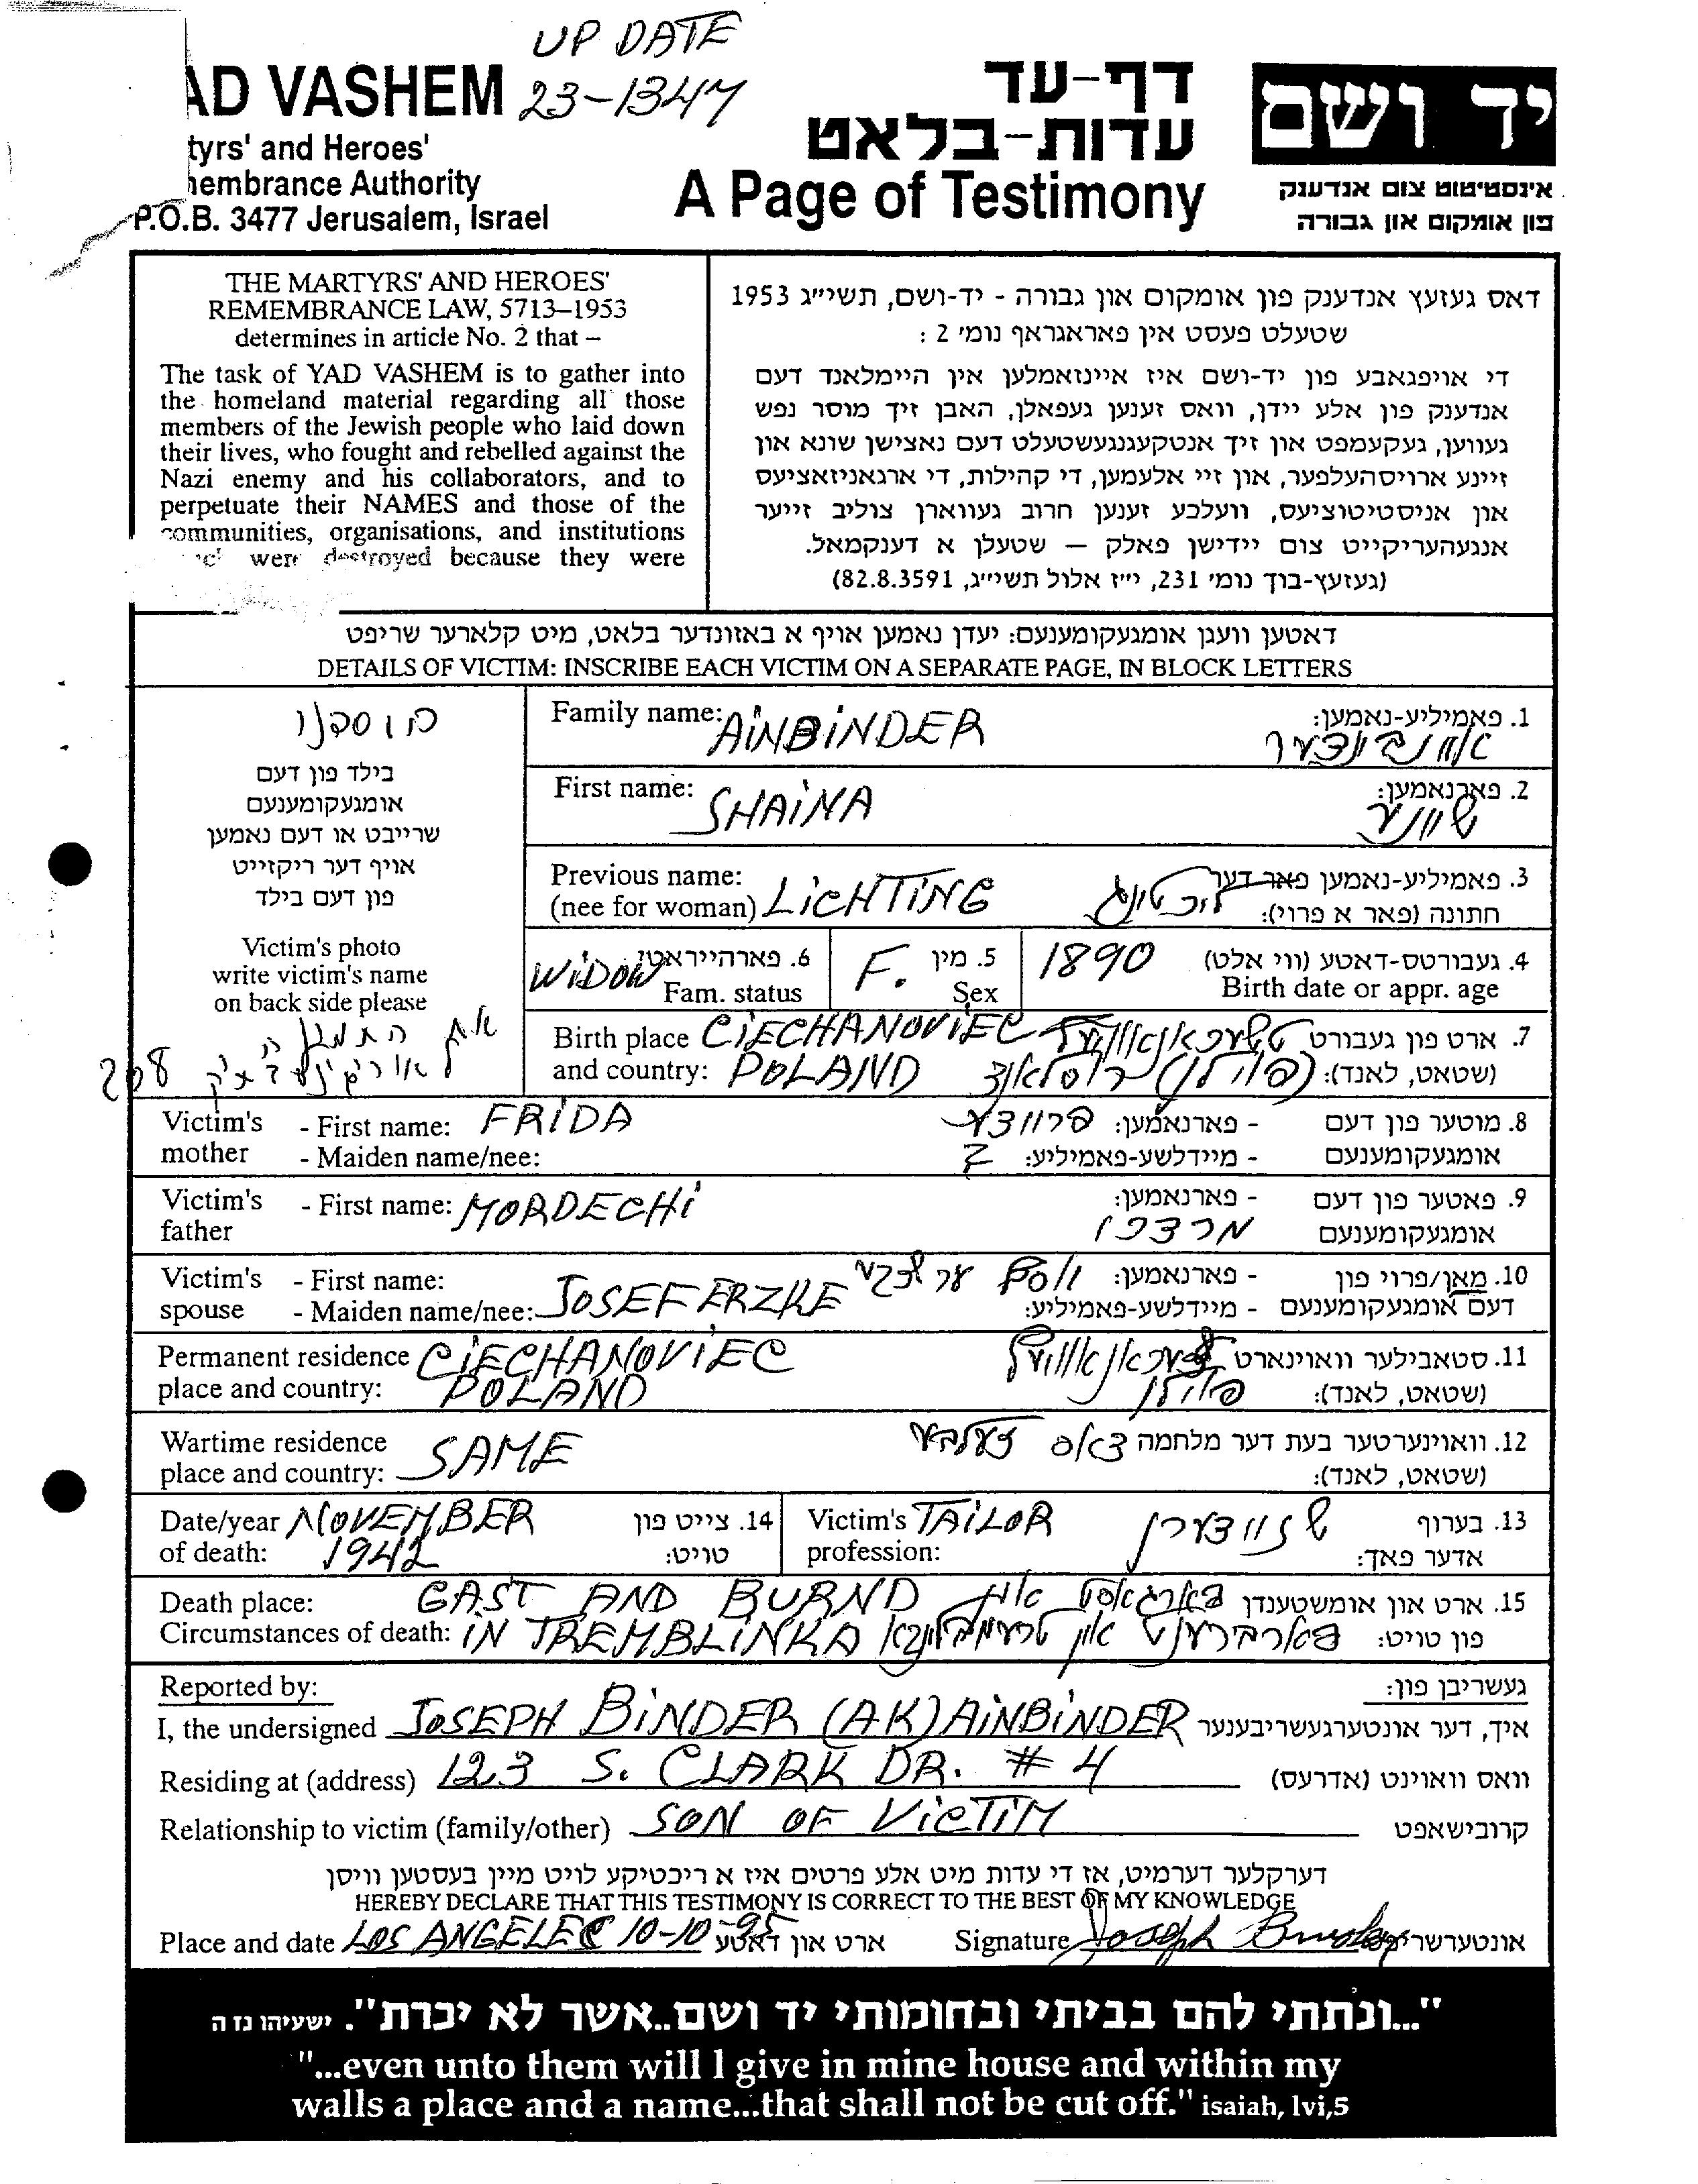 UP DATE
23-1347
AD VASHEM
tyrs' and Heroes'
membrance Authority
P.O.B. 3477 Jerusalem, Israel
דף-עד
עדות-בלאט
A Page of Testimony
יד ושם
אינסטיטוט צום אנדענק
פון אומקום און גבורה
THE MARTYRS' AND HEROES'
REMEMBRANCE LAW, 5713–1953
determines in article No. 2 that –
The task of YAD VASHEM is to gather into
the homeland material regarding all those
members of the Jewish people who laid down
their lives, who fought and rebelled against the
Nazi enemy and his collaborators, and to
perpetuate their NAMES and those of the
communities, organisations, and institutions
were destroyed because they were
דאס געזעץ אנדענק פון אומקום און גבורה - יד-ושם, תשי״ג 1953
שטעלט פעסט אין פאראגראף נומ׳ 2 :
די אויפגאבע פון יד-ושם איז איינזאמלען אין היימלאנד דעם
אנדענק פון אלע יידן, וואס זענען געפאלן, האבן זיך מוסר נפש
געווען, געקעמפט און זיך אנטקעגנגעשטעלט דעם נאצישן שונא און
זיינע ארויסהעלפער, און זיי אלעמען, די קהילות, די ארגאניזאציעס
און אניסטיטוציעס, וועלכע זענען חרוב געווארן צוליב זייער
אנגעהעריקייט צום יידישן פאלק — שטעלן א דענקמאל.
(געזעץ-בוך נומ׳ 231, י״ז אלול תשי״ג, 82.8.3591)
דאטען וועגן אומגעקומענעם: יעדן נאמען אויף א באזונדער בלאט, מיט קלארער שריפט
DETAILS OF VICTIM: INSCRIBE EACH VICTIM ON A SEPARATE PAGE, IN BLOCK LETTERS
בילד פון דעם
אומגעקומענעם
שרייבט או דעם נאמען
אויף דער ריקזייט
פון דעם בילד
Victim's photo
write victim's name
on back side please
268
Family name: AINBINDER 1. פאמיליע-נאמען:
איינבינדער
First name: SHAINA 2. פארנאמען:
שיינע
Previous name: 3. פאמיליע-נאמען פאר דער
(nee for woman) LICHTING חתונה (פאר א פרוי): ליכטינג
WIDOW 6. פארהייראט
Fam. status
F. 5. מין
Sex
1890 4. געבורטס-דאטע (ווי אלט)
Birth date or appr. age
Birth place CIECHANOVIEC 7. ארט פון געבורט
and country: POLAND (שטאט, לאנד): (פוילן) רוסלאנד
Victim's - First name: FRIDA 8. מוטער פון דעם - פארנאמען: פריידע
mother - Maiden name/nee: אומגעקומענעם - מיידלשע-פאמיליע: ?
Victim's - First name: MORDECHI 9. פאטער פון דעם - פארנאמען:
father אומגעקומענעם מרדכי
Victim's - First name: 10. מאן/פרוי פון - פארנאמען: יוסף
spouse - Maiden name/nee: JOSEF ERZKE דעם אומגעקומענעם - מיידלשע-פאמיליע:
Permanent residence CIECHANOVIEC 11. סטאבילער וואוינארט
place and country: POLAND (שטאט, לאנד): פוילן
Wartime residence SAME 12. וואוינערטער בעת דער מלחמה דאס זעלבע
place and country: (שטאט, לאנד):
Date/year NOVEMBER 14. צייט פון
of death: 1942 טויט:
Victim's TAILOR 13. בערוף
profession: אדער פאך: שניידערן
Death place: GAST AND BURND 15. ארט און אומשטענדן פארגאסט און
Circumstances of death: IN TREMBLINKA פון טויט: פארברענט אין טרעמבלינקא
Reported by: געשריבן פון:
I, the undersigned JOSEPH BINDER (AK) AINBINDER איך, דער אונטערגעשריבענער
Residing at (address) 123 S. CLARK DR. # 4 וואס וואוינט (אדרעס)
Relationship to victim (family/other) SON OF VICTIM קרובישאפט
דערקלער דערמיט, אז די עדות מיט אלע פרטים איז א ריכטיקע לויט מיין בעסטען וויסן
HEREBY DECLARE THAT THIS TESTIMONY IS CORRECT TO THE BEST OF MY KNOWLEDGE
Place and date LOS ANGELES 10-10-95 ארט און דאטע Signature Joseph Binder
"...ונתתי להם בביתי ובחומותי יד ושם..אשר לא יכרת". ישעיהו נז ה
"...even unto them will I give in mine house and within my
walls a place and a name...that shall not be cut off." isaiah, lvi,5